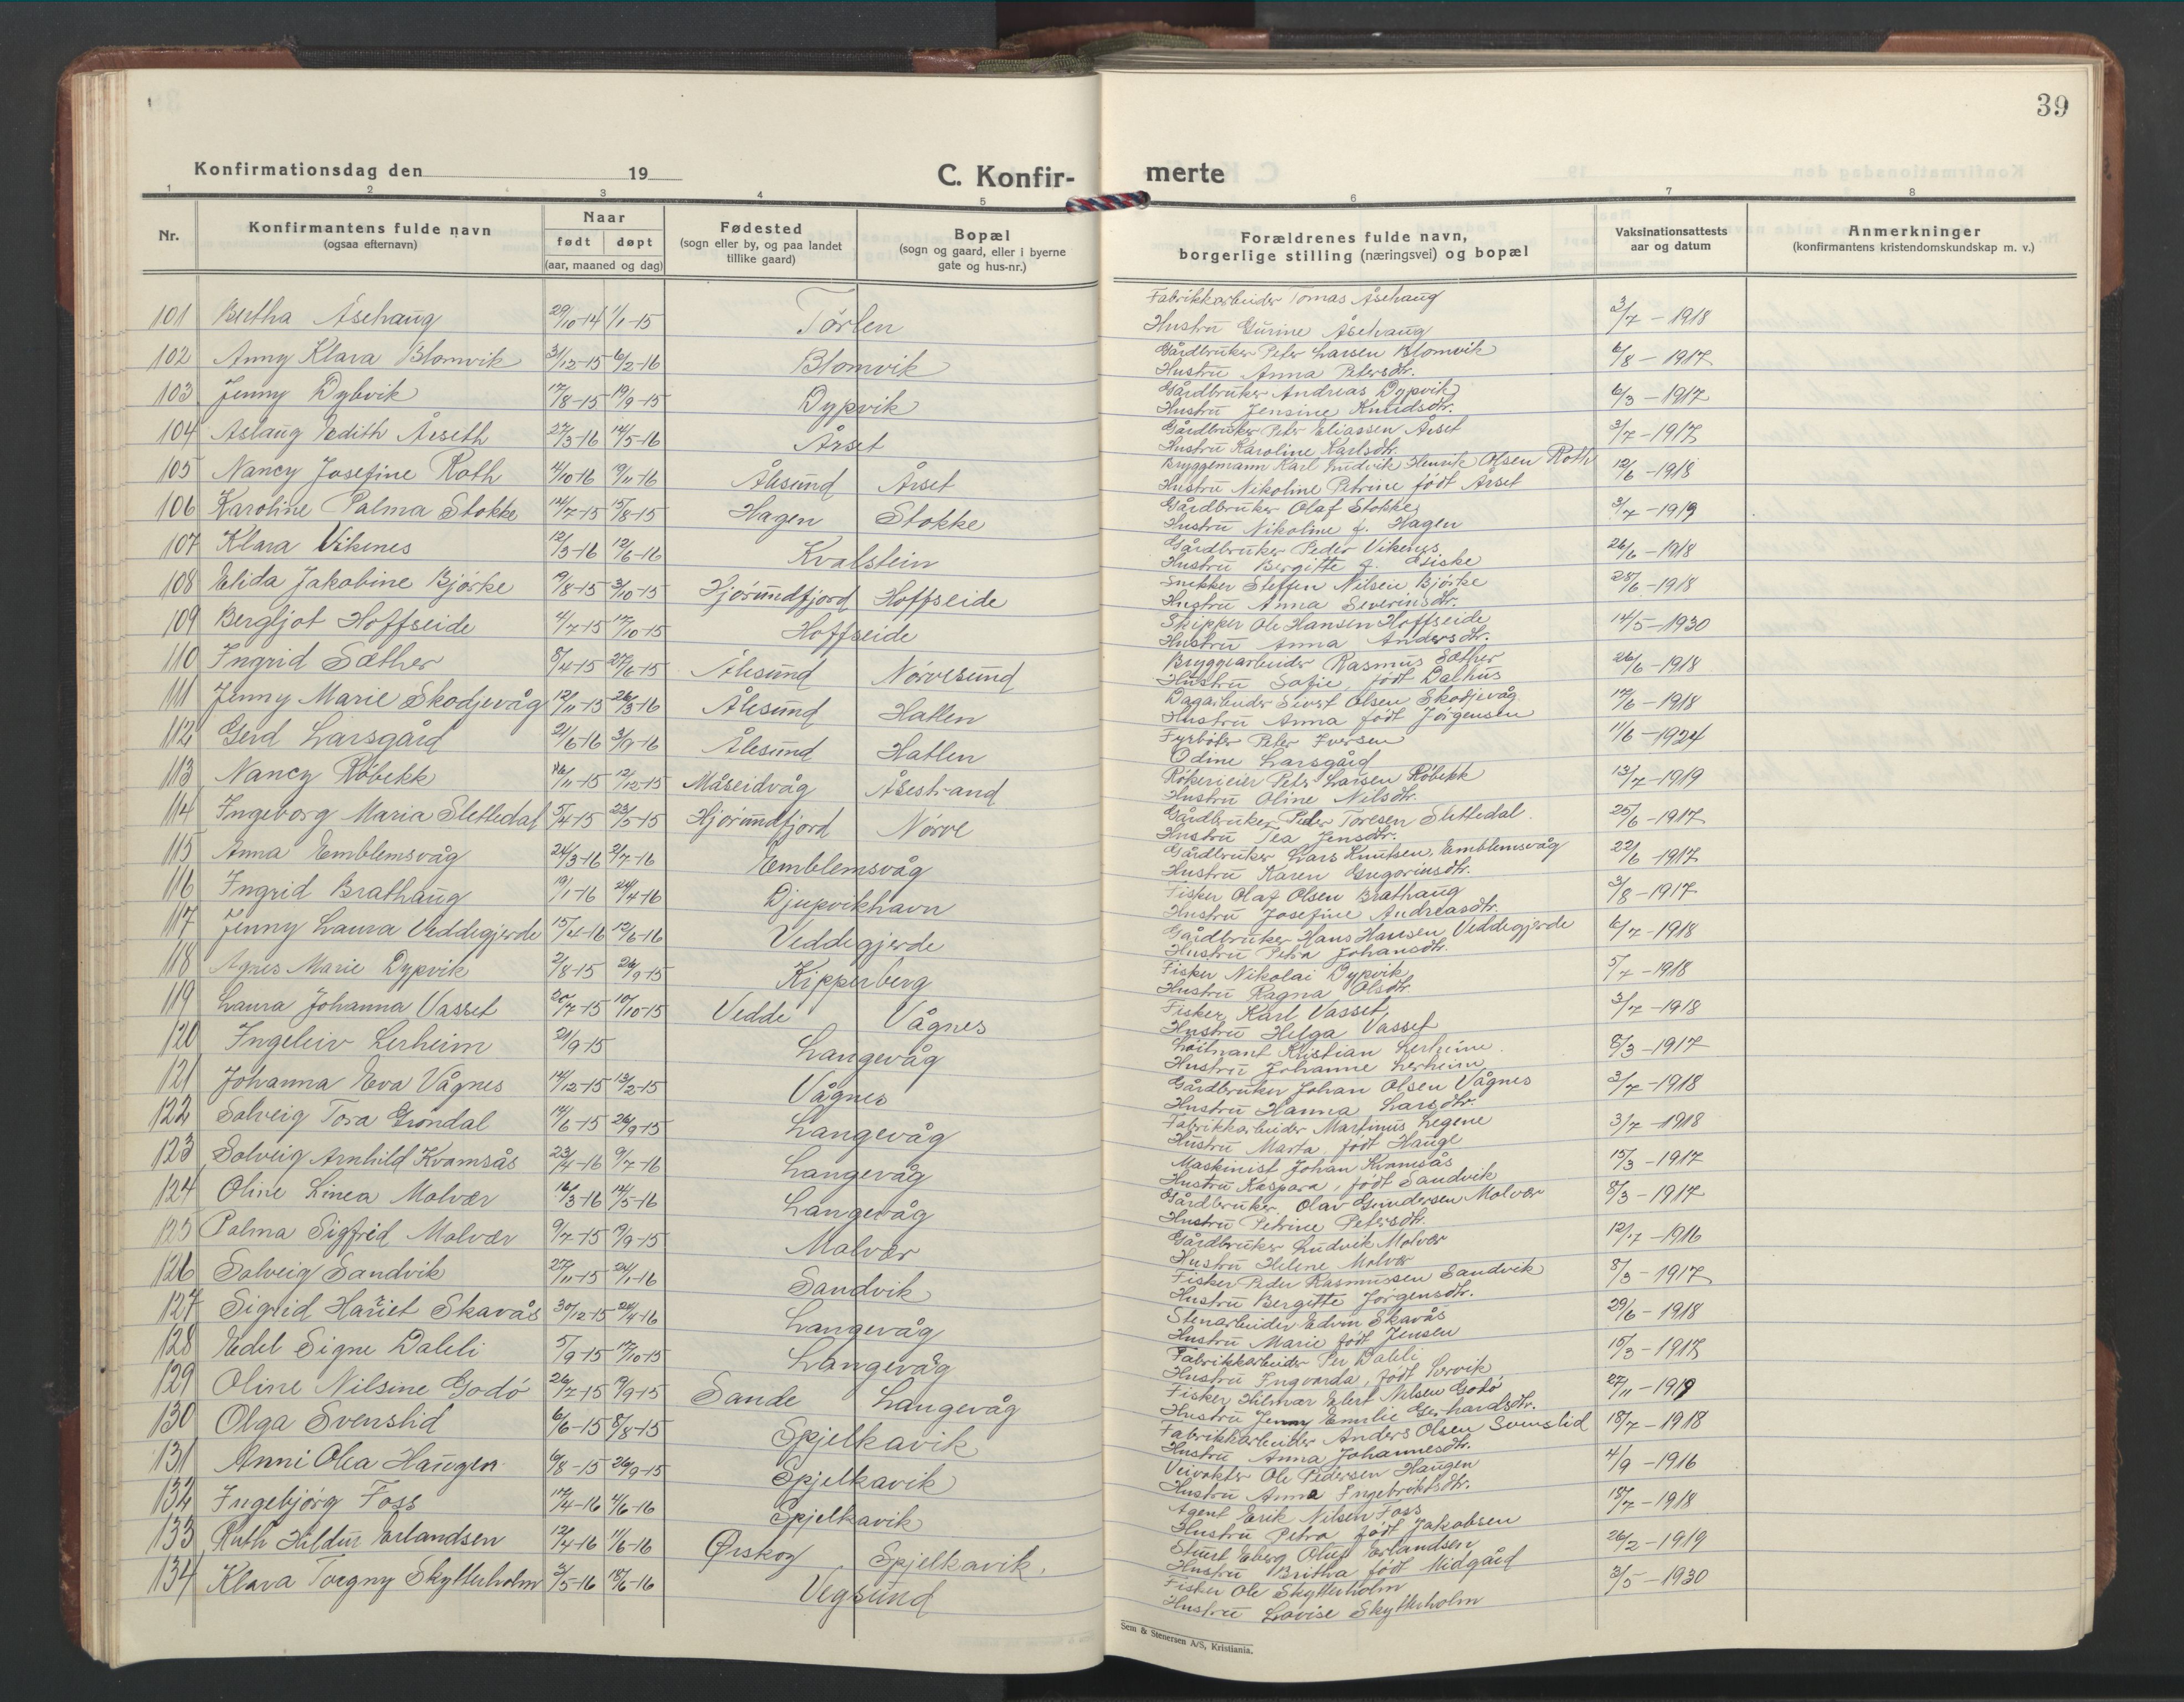 39
Konfirmationsdag den 19
C. Konfir-
merte
1 2 3 4 5 6 7 8
Nr.
Konfirmantens fulde navn
(ogsaa efternavn)
Naar
født døpt
(aar, maaned og dag)
Fødested
(sogn eller by, og paa landet
tillike gaard)
Bopæl
(sogn og gaard, eller i byerne
gate og hus-nr.)
Forældrenes fulde navn,
borgerlige stilling (næringsvei) og bopæl
Vaksinationsattests
aar og datum
Anmerkninger
(konfirmantens kristendomskundskap m. v.)
101 Bertha Åsehaug 29/10-14 1/1-15 Tørlen Fabrikkarbeider Tomas Åsehaug 3/7-1918
Hustru Gurine Åsehaug
102 Anny Klara Blomvik 31/12-15 6/2-16 Blomvik Gårdbruker Peter Larsen Blomvik 6/8-1917
Hustru Anna Petersdtr.
103 Jenny Dybvik 17/8-15 19/9-15 Dypvik Gårdbruker Andreas Dypvik 6/3-1917
Hustru Jensine Knudsdtr.
104 Aslaug Edith Årseth 27/3-16 14/5-16 Årset Gårdbruker Peter Eliassen Årset 3/7-1917
Hustru Karoline Karlsdtr.
105 Nancy Josefine Roth 4/10-16 19/11-16 Ålesund Årset Bryggemann Karl Ludvik Henrik Olsen Roth 12/6-1918
Hustru Nikoline Petrine født Årset
106 Karoline Palma Stokke 14/7-15 15/8-15 Hagen Stokke Gårdbruker Olaf Stokke 3/7-1919
Hustru Nikoline f. Hagen
107 Klara Vikenes 12/3-16 12/6-16 Kvalstein Gårdbruker Peder Vikenes 26/6-1918
Hustru Bergitte f. Giske
108 Elida Jakobine Bjørke 19/8-15 3/10-15 Hjørundfjord Hoffseide Snekker Steffen Nilsen Bjørke 28/6-1918
Hustru Anna Severinsdtr.
109 Bergljot Hoffseide 4/7-15 17/10-15 Hoffseide Skipper Ole Hansen Hoffseide 14/5-1930
Hustru Anna Andersdtr.
110 Ingrid Sæther 8/4-15 27/6-15 Ålesund Nørvesund Bryggearbeider Rasmus Sæther 26/6-1918
Hustru Sofie, født Dalhus
111 Jenny Marie Skodjevåg 12/11-15 26/3-16 Ålesund Hatlen Dagarbeider Sivert Olsen Skodjevåg 17/6-1918
Hustru Anna født Jørgensen
112 Gerd Larsgård 21/6-16 3/9-16 Ålesund Hatlen Fyrbøter Peter Iversen 11/6-1924
Odine Larsgård
113 Nancy Røbekk 16/11-15 12/12-15 Måseidvåg Åsestrand Røkerieier Peter Larsen Røbekk 13/7-1919
Hustru Oline Nilsdtr.
114 Ingeborg Maria Slettedal 5/4-15 23/5-15 Hjørundfjord Nørve Gårdbruker Peder Toresen Slettedal. 25/6-1917
Hustru Tea Jensdtr.
115 Anna Emblemsvåg 24/3-16 2/7-16 Emblemsvåg Gårdbruker Lars Knutsen, Emblemsvåg 22/6-1917
Hustru Karen Gregoriusdtr.
116 Ingrid Brathaug 19/1-16 24/4-16 Djupvikhavn Fisker Olaf Olsen Brathaug 3/8-1917
Hustru Josefine Andreasdtr.
117 Jenny Laura Veddegjerde 15/4-16 12/6-16 Veddegjerde Gårdbruker Hans Hansen Veddegjerde 6/7-1918
Hustru Petra Johansdtr.
118 Agnes Marie Dypvik 2/8-15 26/9-15 Kipperberg Fisker Nikolai Dypvik 5/7-1918
Hustru Ragna Olsdtr.
119 Laura Johanna Vasset 20/7-15 10/10-15 Vedde Vågnes Fisker Karl Vasset 3/7-1918
Hustru Helga Vasset
120 Ingeleiv Lerheim 21/9-15 Langevåg Løitnant Kristian Lerheim. 8/3-1917
Hustru Johanne Lerheim
121 Johanna Eva Vågnes 14/12-15 13/2-15 Vågnes Gårdbruker Johan Olsen Vågnes 3/7-1918
Hustru Hanna Larsdtr.
122 Solveig Tora Grøndal 14/6-15 26/9-15 Langevåg Fabrikkarbeider Martinus Legene 3/7-1918
Hustru Marta, født Hauge
123 Solveig Arnhild Kvamsås 23/4-16 9/7-16 Langevåg Maskinist Johan Kvamsås 15/3-1917
Hustru Kaspara, født Sandvik
124 Oline Linea Molvær 16/3-16 14/5-16 Langevåg Gårdbruker Olav Gundersen Molvær 8/3-1917
Hustru Petrine Petersdtr.
125 Palma Sigfrid Molvær 9/7-15 19/9-15 Molvær Gårdbruker Ludvik Molvær 12/7-1916
Hustru Helene Molvær
126 Solveig Sandvik 27/11-15 24/1-16 Sandvik Fisker Peder Rasmussen Sandvik 8/3-1917
Hustru Bergitte Jørgensdtr.
127 Sigrid Hariet Skavås 30/12-15 24/4-16 Langevåg Stenarbeider Edvin Skavås 29/6-1918
Hustru Marie født Jensen
128 Edel Signe Daleli 5/9-15 17/10-15 Langevåg Fabrikkarbeider Per Daleli 15/3-1917
Hustru Ingvarda, født Lervik
129 Oline Nilsine Godø 26/7-15 19/9-15 Sande Langevåg Fisker Hilmar Elert Nilsen Godø 27/11-1919
Hustru Jenny Emilie Gerhardsdtr.
130 Olga Svenslid 6/6-15 8/8-15 Spjelkavik Fabrikkarbeider Anders Olsen Svenslid 18/7-1918
Hustru Anna Johannesdtr.
131 Anni Olea Haugen 6/8-15 26/9-15 Spjelkavik Veivokter Ole Pedersen Haugen 4/9-1916
Hustru Anna Ingebriktsdtr.
132 Ingebjørg Foss 17/4-16 4/6-16 Spjelkavik Agent Erik Nilsen Foss 18/7-1918
Hustru Petra født Jakobsen
133 Ruth Hildur Erlandsen 12/4-16 11/6-16 Ørskog Spjelkavik. Stuert Eberg Oluf Erlandsen 26/2-1919
Hustru Britha født Midgård
134 Klara Torgny Skytterholm 3/5-16 18/6-16 Vegsund Fisker Ole Skytterholm 3/5-1930
Hustru Lovise Skytterholm
Sem & Stenersen A/S, Kristiania.